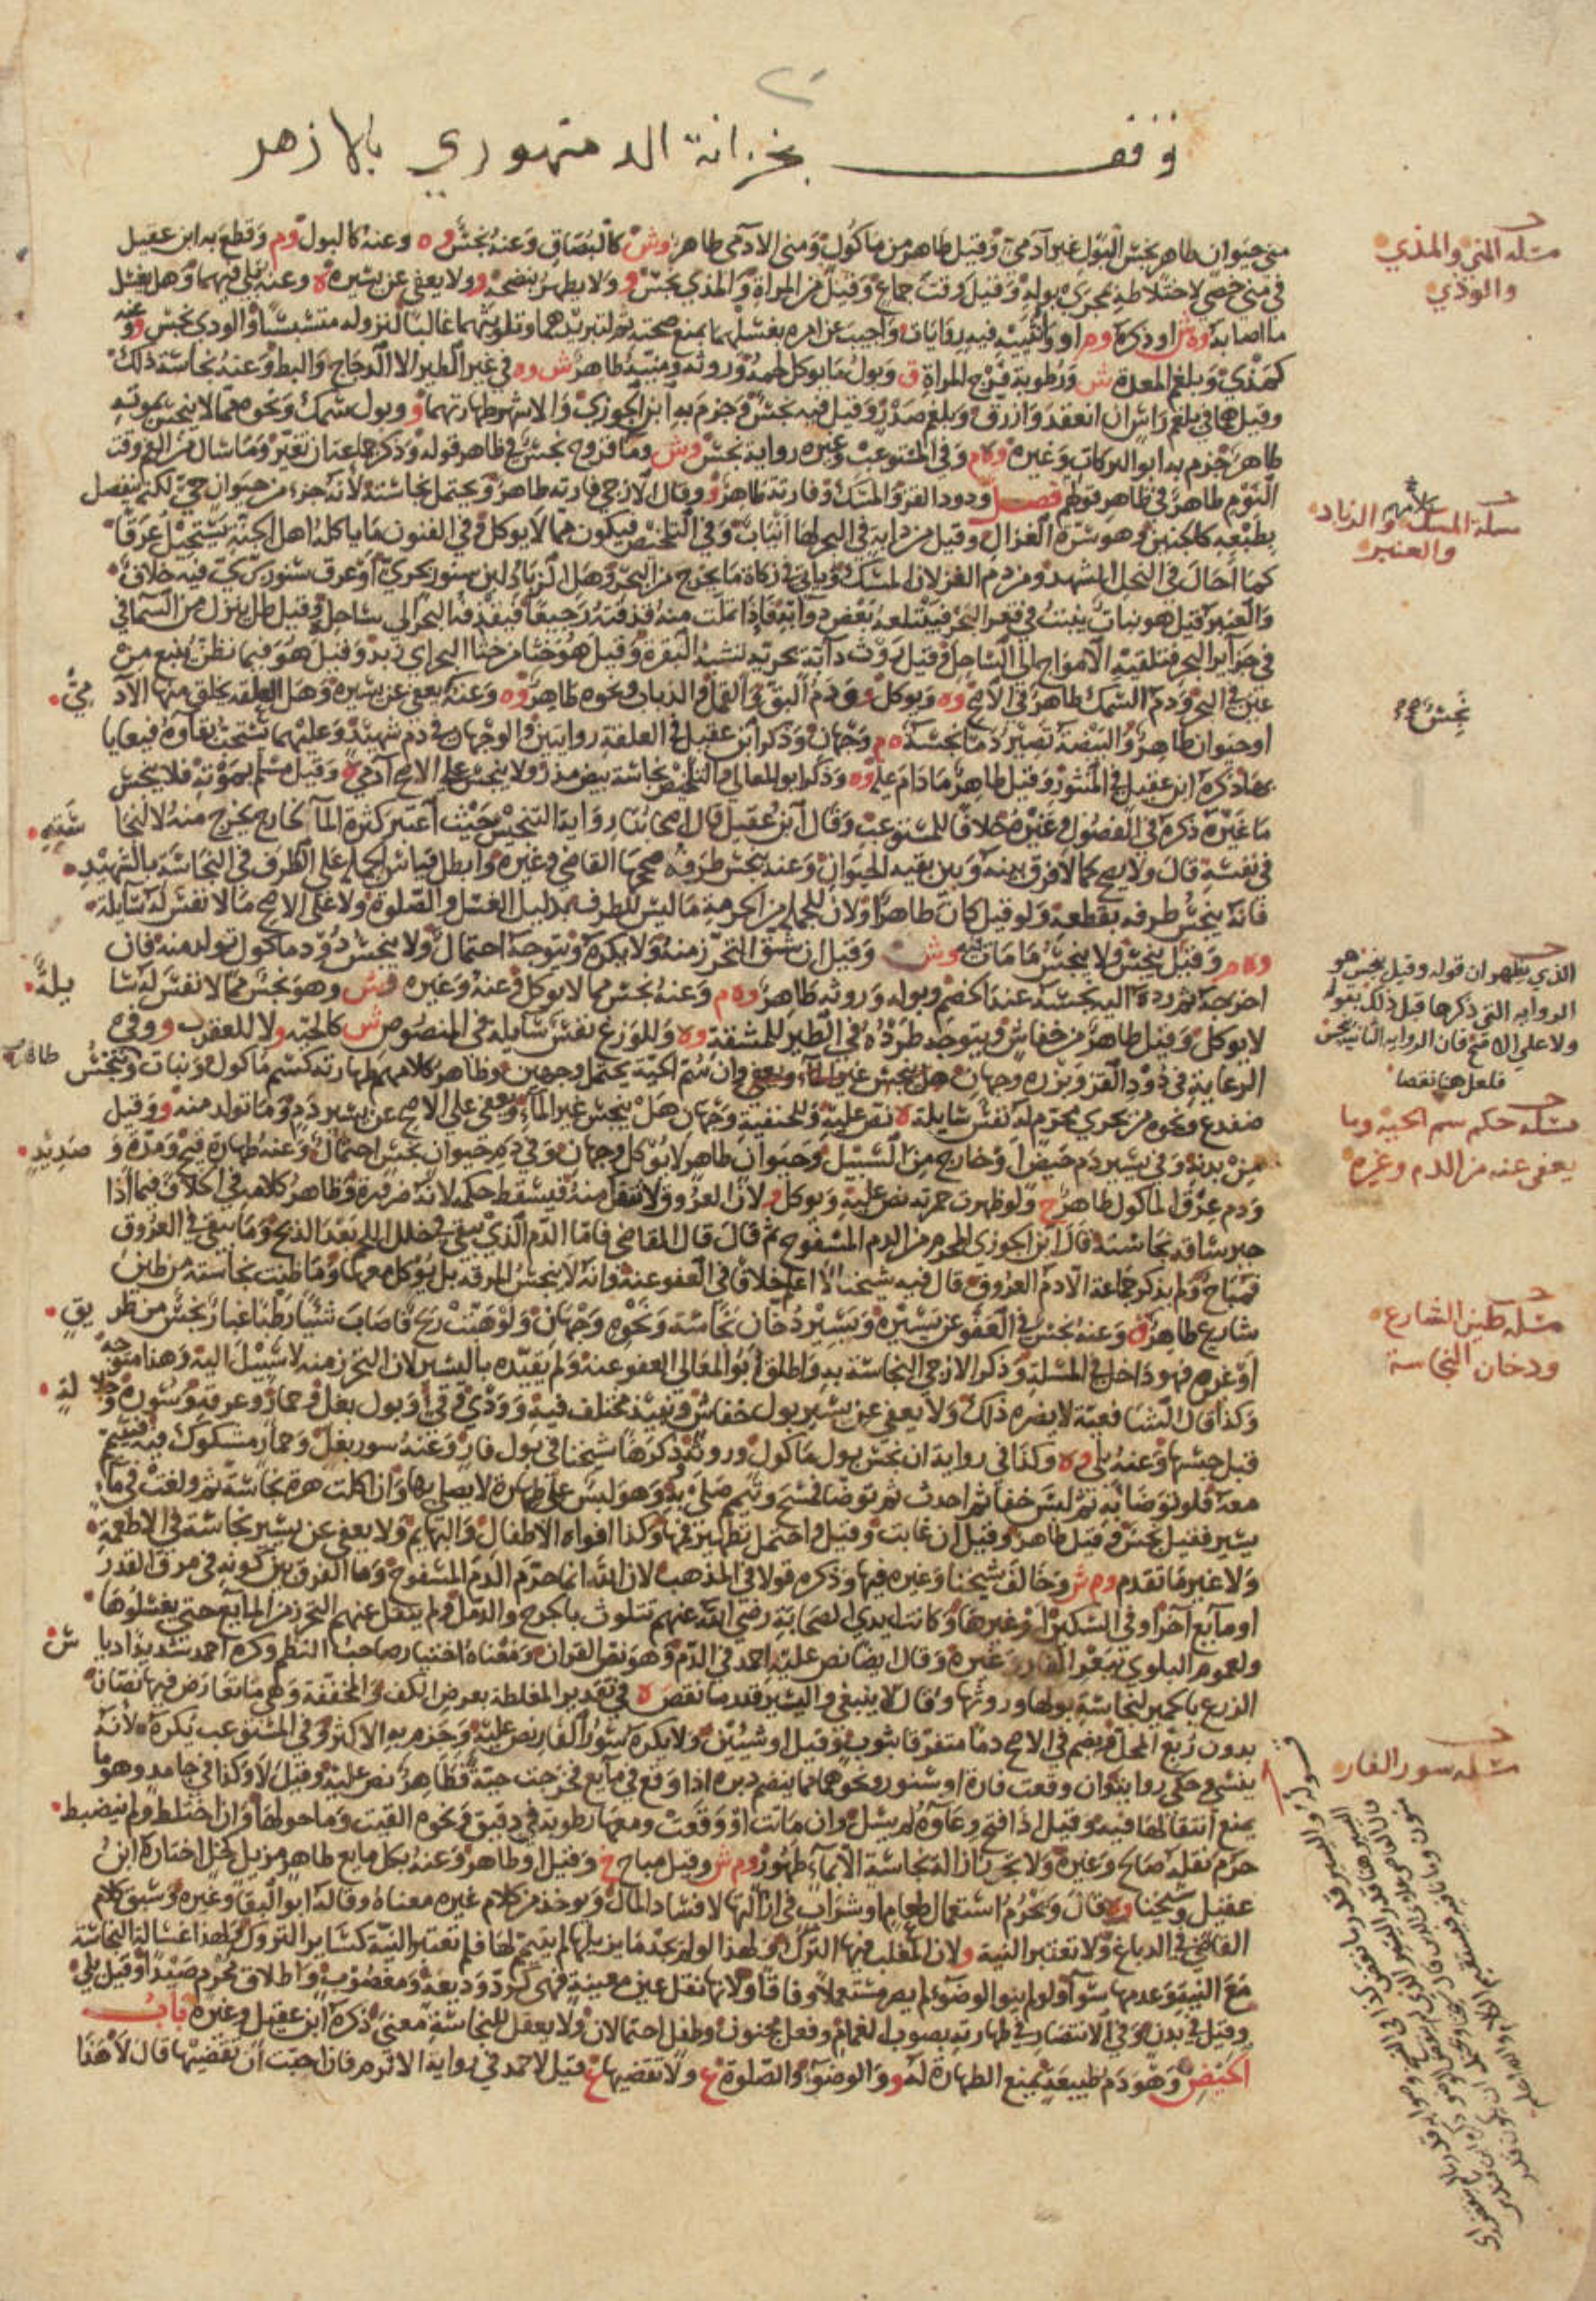 وقف بخزانة الدمنهوري بالازهر
مني حيوان طاهر نجس البول غير آدمي وقيل طاهر من ماكول ومني الادمي طاهر وش كالبصاق وعنه نجس وه وعنه كالبول وم وقطع به ابن عقيل
في مني خصي لاختلاطه بمجرى بوله وقيل وقت جماع وقيل من المراة والمذي نجس و ولا يطهر بنضحه و ولا يعفى عن يسيره ه وعنه بلى فيهما وهل يغسل
ما اصابه وه ش او ذكره وم او وانثييه فيه روايات واجيب عن امره بغسلهما بمنع صحته ثم لتبريدهما وتلويثهما غالبا لنزوله متسبسبا والودي نجس و وعنه
كمذي وبلغم المعدة ش ورطوبة فرج المراة ق وبول ما يوكل لحمه وروثه ومنيه طاهر ش وه في غير الطير الا الدجاج والبط وعنه نجاسة ذلك
وقيل هما في بلغم راس ان انعقد وازرق وبلغم صدر وقيل فيه نجس وجزم به ابن الجوزي والاشهر طهارتهما و وبول سمك ونحوه مما لا ينجس بموته
طاهر جزم به ابو البركات وغيره وه م وفي المستوعب وغيره رواية نجس وش وماء قروح نجس في ظاهر قوله وذكر جماعة ان تغير وما سال من الفم وقت
النوم طاهر في ظاهر قولهم فصل ودود القز والمسك وفارته طاهر و وقال الازجي فارته طاهر ويحتمل نجاسته لانه جزء من حيوان حي لكنه ينفصل
بطبعه كالجنين وهو سرة الغزال وقيل من دابة في البحر لها انياب وفي التلخيص فيكون مما لا يوكل وفي الفنون ما ياكله اهل الجنة يستحيل عرقا
كما احال في النحل الشهد ومن دم الغزلان المسك وياتي في زكاة ما يخرج من البحر وهل الزباد لبن سنور بحري او عرق سنور بري فيه خلاف
والعنبر قيل هو نبات ينبت في قعر البحر فيبتلعه بعض دوابه فاذا ثملت منه قذفته رجيعا فيقذفه البحر الى ساحله وقيل طل ينزل من السما في
في جزاير البحر فتلقيه الامواج الى الساحل وقيل روث دابة بحرية تشبه البقرة وقيل هو جثا من جثا البحر اي زبد وقيل هو فيما نظن ينبع من
عين في البحر ودم السمك طاهر في الاصح وه ويوكل و ودم البق والقمل والذباب ونحوه طاهر وه وعنه يعفى عن يسيره وهل العلقة يخلق منها الآدمي
او حيوان طاهر والبيضة تصير دما نجسة ه م وجهان وذكر ابن عقيل في العلقة روايتين والوجهان في دم شهيد وعليهما يستحب بقاوه فيعايا
بها ذكره ابن عقيل في المنثور وقيل طاهر ما دام عليه وه وذكر ابو المعالي والتلخيص نجاسة بيض مذر ولا ينجس على الاصح آدمي ه وقيل مسلم بموته فلا ينجس
ما غيره ذكره في الفصول وغيره خلافا للمستوعب وقال ابن عقيل قال اصحابنا رواية التنجيس حيث اعتبر كثرة الما الخارج يخرج منه لا لنجاسته
في نفسه قال ولا يصح كما لا فرق بينه وبين بقية الحيوان وعنه ينجس طرفه صححها القاضي وغيره وابطل قياس الجملة على الطرف في النجاسة بالشهيد
فانه ينجس طرفه بقطعه ولو قتل كان طاهرا ولان للجملة من الحرمة ما ليس للطرف بدليل الغسل والصلوة ولا على الاصح ما لا نفس له سايلة
وه م وقيل ينجس ولا ينجس ما مات فيه وش وقيل ان شق التحرز منه ولا يكره ويتوجه احتمال ولا ينجس دود ماكول تولد منه فان
اخرجه ثم رده اليه نجسه عند الخصم وبوله وروثه طاهر وه م وعنه نجس مما لا يوكل وعنه وغيره وش وهو نجس مما لا نفس له سايلة
لا يوكل وقيل طاهر من خفاش ويتوجه طرده في الطير للمشقة وه وللوزغ نفس سايلة في المنصوص ش كالحية و لا للعقرب و وفي
الرعاية في دود القز وبزره وجهان وان سم الحية يحتمل وجهين وظاهر كلامهم طهارته كسم ماكول ونبات وينجس
ضفدع ونحوه من بحري محرم له نفس سايلة ه نص عليه وللحنفية وجهان هل ينجس غير الما ويعفى على الاصح عن يسير دم وما تولد منه و وقيل
من بدنه وفي يسير دم حيض او خارج من السبيل وحيوان طاهر لا يوكل وجهان وفي دم حيوان نجس احتمال وعنه طهارة قيح ومدة وصديد
ودم عرق الماكول طاهر ح ولو ظهرت حمرته نص عليه ويوكل و لان العروق لا تنفك منه فيسقط حكمه لانه ضرورة وظاهر كلامه في الخلاف فيما اذا
جبر ساقه نجاسته قال ابن الجوزي المحرم من الدم المسفوح ثم قال قال القاضي فاما الدم الذي يبقى في خلل اللحم بعد الذبح وما يبقى في العروق
فمباح ولم يذكر جماعة الا دم العروق قال فيه شيخنا لا اعلم خلافا في العفو عنه وانه لا ينجس المرقة بل يوكل معها وما ظنت نجاسته من طين
شارع طاهر ه وعنه نجس وفي العفو عن يسيره ويسير دخان نجاسة ونحوه وجهان ولو هبت ريح فاصاب شيئا رطبا غبار نجس من طريق
او غيره فهو داخل في المسئلة وذكر الازجي النجاسة به واطلق ابو المعالي العفو عنه ولم يقيده باليسير لان التحرز منه لا سبيل اليه وهذا متوجه
وكذا قال الشافعية لا يضره ذلك ولا يعفى عن يسير بول خفاش ونبيذ مختلف فيه وودي وقيء وبول بغل وحمار وعرقه وسوره وجلالة
قبل حبسها وعنه بلى وه وكذا في رواية ان نجس بول ماكول وروثه ذكرها شيخنا في بول فار وعنه سور بغل وحمار مشكوك فيه فيتيمم
معه فلو توضا به ثم لبس خفا ثم احدث ثم توضا فمسح وتيمم صلى به وهو لبس على طهارة لا يصلي بها وان اكلت هرة نجاسة ثم ولغت في ماء
يسير فقيل نجس وقيل طاهر وقيل ان غابت وقيل واحتمل تطهيرها وكذا افواه الاطفال والبهايم ولا يعفى عن يسير نجاسة في الاطعمة
ولا غير ما تقدم وم ش وخالف شيخنا وغيره فيها وذكره قولا في المذهب لان الله انما حرم الدم المسفوح وما الفرق بين كونه في مرق القدر
او مايع آخر او في السكين او غيرها وكانت ايدي الصحابة رضي الله عنهم تتلوث بالجرح والدمل ولم ينقل عنهم التحرز من المايع حتى يغسلوها
ولعموم البلوى ببعر الفار وغيره وقال ايضا نص عليه احمد في الدم وهو نص القران ومعناه اختيار صاحب النظم وكره احمد شديدا دياس
الزرع بالحمير لنجاسة بولها وروثها وقال لا ينبغي واليسير قدر ما نقض ه في تقديره المغلظة بعرض الكف والمخففة وهي ما تعارض فيها نصان
بدون ربع المحل ويضم في الاصح دما متفرقا بثوب وقيل او شيئين ولا يكره سور الفار نص عليه وجزم به الاكثر وفي المستوعب يكره لانه
ينسي وحكى رواية وان وقعت فارة او سنور ونحوهما مما ينضم دبره اذا وقع في مايع فخرجت حية فطاهر نص عليه وقيل لا وكذا في جامد وهو ما
يمنع انتقالها فيه وقيل اذا فتح وعاوه لم يسل وان ماتت او وقعت ومعها رطوبة في دقيق ونحوه القيت وما حولها وان اختلط ولم ينضبط
حرم نقله صالح وغيره ولا يجوز ازالة نجاسة الا بماء طهور وم ش وقيل مباح خ وقيل او طاهر وعنه بكل مايع طاهر مزيل كخل اختاره ابن
عقيل وشيخنا وه قال ويحرم استعمال طعام وشراب في ازالتها لافساد المال ويوخذ من كلام غيره معناه وقاله ابو البقا وغيره وسبق كلام
القاضي في الدباغ ولا تعتبر النية و لان المغلب فيها الترك ولهذا لو لم يجد ما يزيلها لم يتيمم لها فلم تعتبر النية كساير التروك ولهذا غسالة النجاسة
مع النية وعدمها سوآ ولو لم ينو الوضوء لم يصر مستعملا وفاقا ولانها نقل عين معينة فهي كرد وديعة ومغصوب واطلاق محرم صيدا وقيل بلى
وقيل في بدن وفي الانتصار في طهارته بصوب الغمام وفعل مجنون وطفل احتمالان ولا يعقل للنجاسة معنى ذكره ابن عقيل وغيره باب
الحيض وهو دم طبيعة يمنع الطهارة له و والوضوء والصلوة ع ولا تقضيها ع قيل لاحمد في رواية الاثرم فان احبت ان تقضيها قال لا هذا
مسلة المني والمذي
والودي
مسلة المسك والزباد
والعنبر
نجس
الذي يظهر ان قوله وقيل ينجس هو
الرواية التي ذكرها قبل ذلك بقوله
ولا على الاصح فان الرواية الثانية ينجس
فلعل هنا نقصا
مسلة حكم سم الحية وما
يعفى عنه من الدم وغيره
مسلة طين الشارع
ودخان النجاسة
مسلة سور الفار